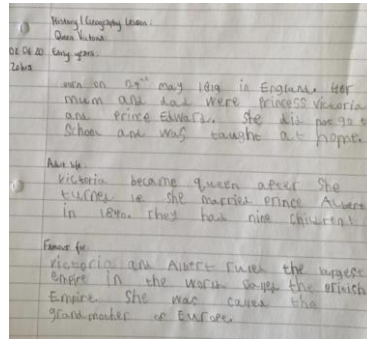 History/Geography Lesson:
Queen Victoria
02.06.20 Early years:
Zebra
born on 24th may 1819 in England. Her
mum and dad were princess victoria
and Prince Edward. She did not go t
School and was taught at home.
Adult life:
victoria became queen after She
turned 18 She married Prince Albert
in 1840. They had nine children!
Famous for:
victoria and Albert ruled the largest
Empire in the world called the British
Empire. She was called the
grandmother of Europe.